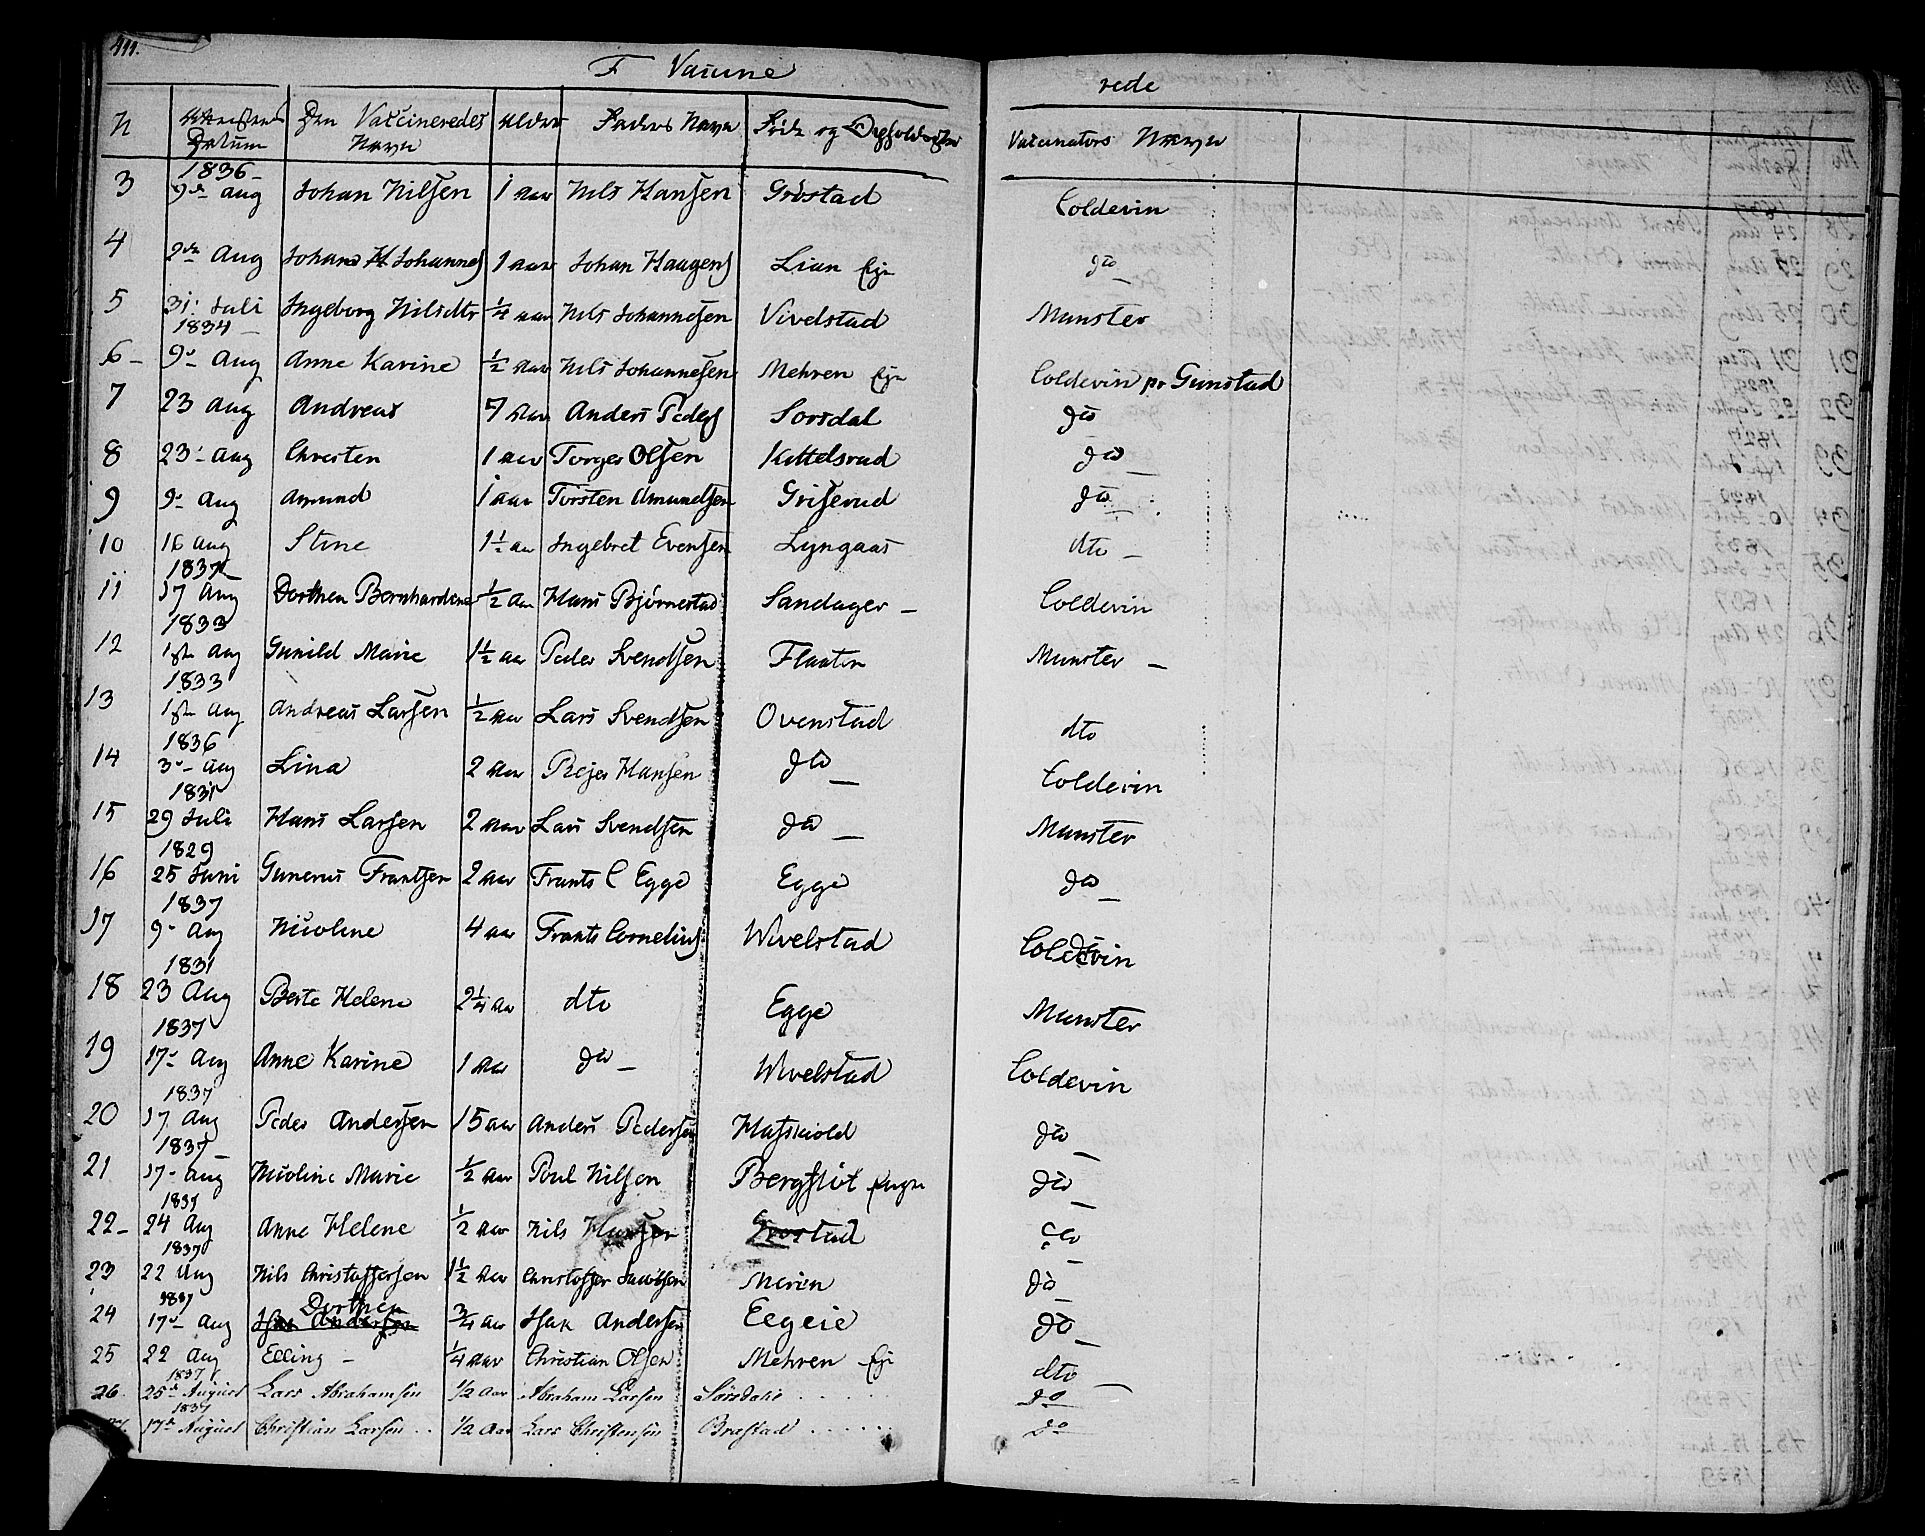 411.
F Vaccine rede
N Attestens Datum Den Vaccineredes Navn Alder Faders Navn Føde og Opholdssted Vaccinators Navn
1836
3 9de Aug Johan Nilsen 1 Aar Nils Hansen Grøstad Coldevin
4 2den Aug Johan H Johannes 1 aar Johan Haagens Lian Eje do
5 31 Juli Ingeborg Nilsdtr 1/4 aar Nils Johannesen Vivelstad Munster
1834
6 9de Aug Anne Karine 1/2 Aar Nils Johannesen Mehren Eje Coldevin pr Gunstad
7 23 Aug Andreas 7 Aar Anders Peders Sorsdal do
8 23 Aug Christen 1 aar Torger Olsen Kittelsrud do
9 9 Aug Amund 1 aar Torsten Amundsen Griserud do
10 16 Aug Stine 1 1/2 aar Ingebret Evensen Lyngaas dto
1837
11 17 Aug Dorthea Bernhardene 1/2 Aar Hans Bjørnestad Sandager Coldevin
1833
12 1ste Aug Gunild Marie 1 1/2 aar Peder Svendsen Flaaten Munster
1833
13 1ste Aug Andreas Larsen 1/2 Aar Lars Svendsen Ovenstad dto
1836
14 3 Aug Lina 2 Aar Rejer Hansen do Coldevin
1831
15 29 Juli Hans Larsen 2 Aar Lars Svendsen do Munster
1829
16 25 Juni Gunerus Frantsen 2 Aar Frants C Egge Egge do
1837
17 9 Aug Nicoline 4 aar Frants Cornelius Wivelstad Coldevin
1831
18 23 Aug Berte Helene 2 1/4 Aar dto Egge Munster
1837
19 17 Aug Anne Karine 1 Aar do Wivelstad Coldevin
1837
20 17 Aug Peder Andersen 15 aar Anders Pedersen Hafskiold do
1837
21 17 Aug Nicoline Marie 1/2 Aar Poul Nilsen Bergflöt do
1837
22 24 Aug Anne Helene 1/2 aar Nils Hansen Grostad do
1837
23 22 Aug Nils Christoffersen 1 1/2 Aar Christoffer Meren do
1837
Dorthea
24 17 Aug Isak Andersen 3/4 Aar Isak Andersen Eegeie do
25 22 Aug Elling 1/4 Aar Christian Olsen Mehren Eje dto
1837
26 25de August Lars Abrahamsen 1/2 Aar Abraham Larsen Sørsdahl do
1837
27. 17de August Christian Larsen 1/2 Aar Lars Christensen Brastad do